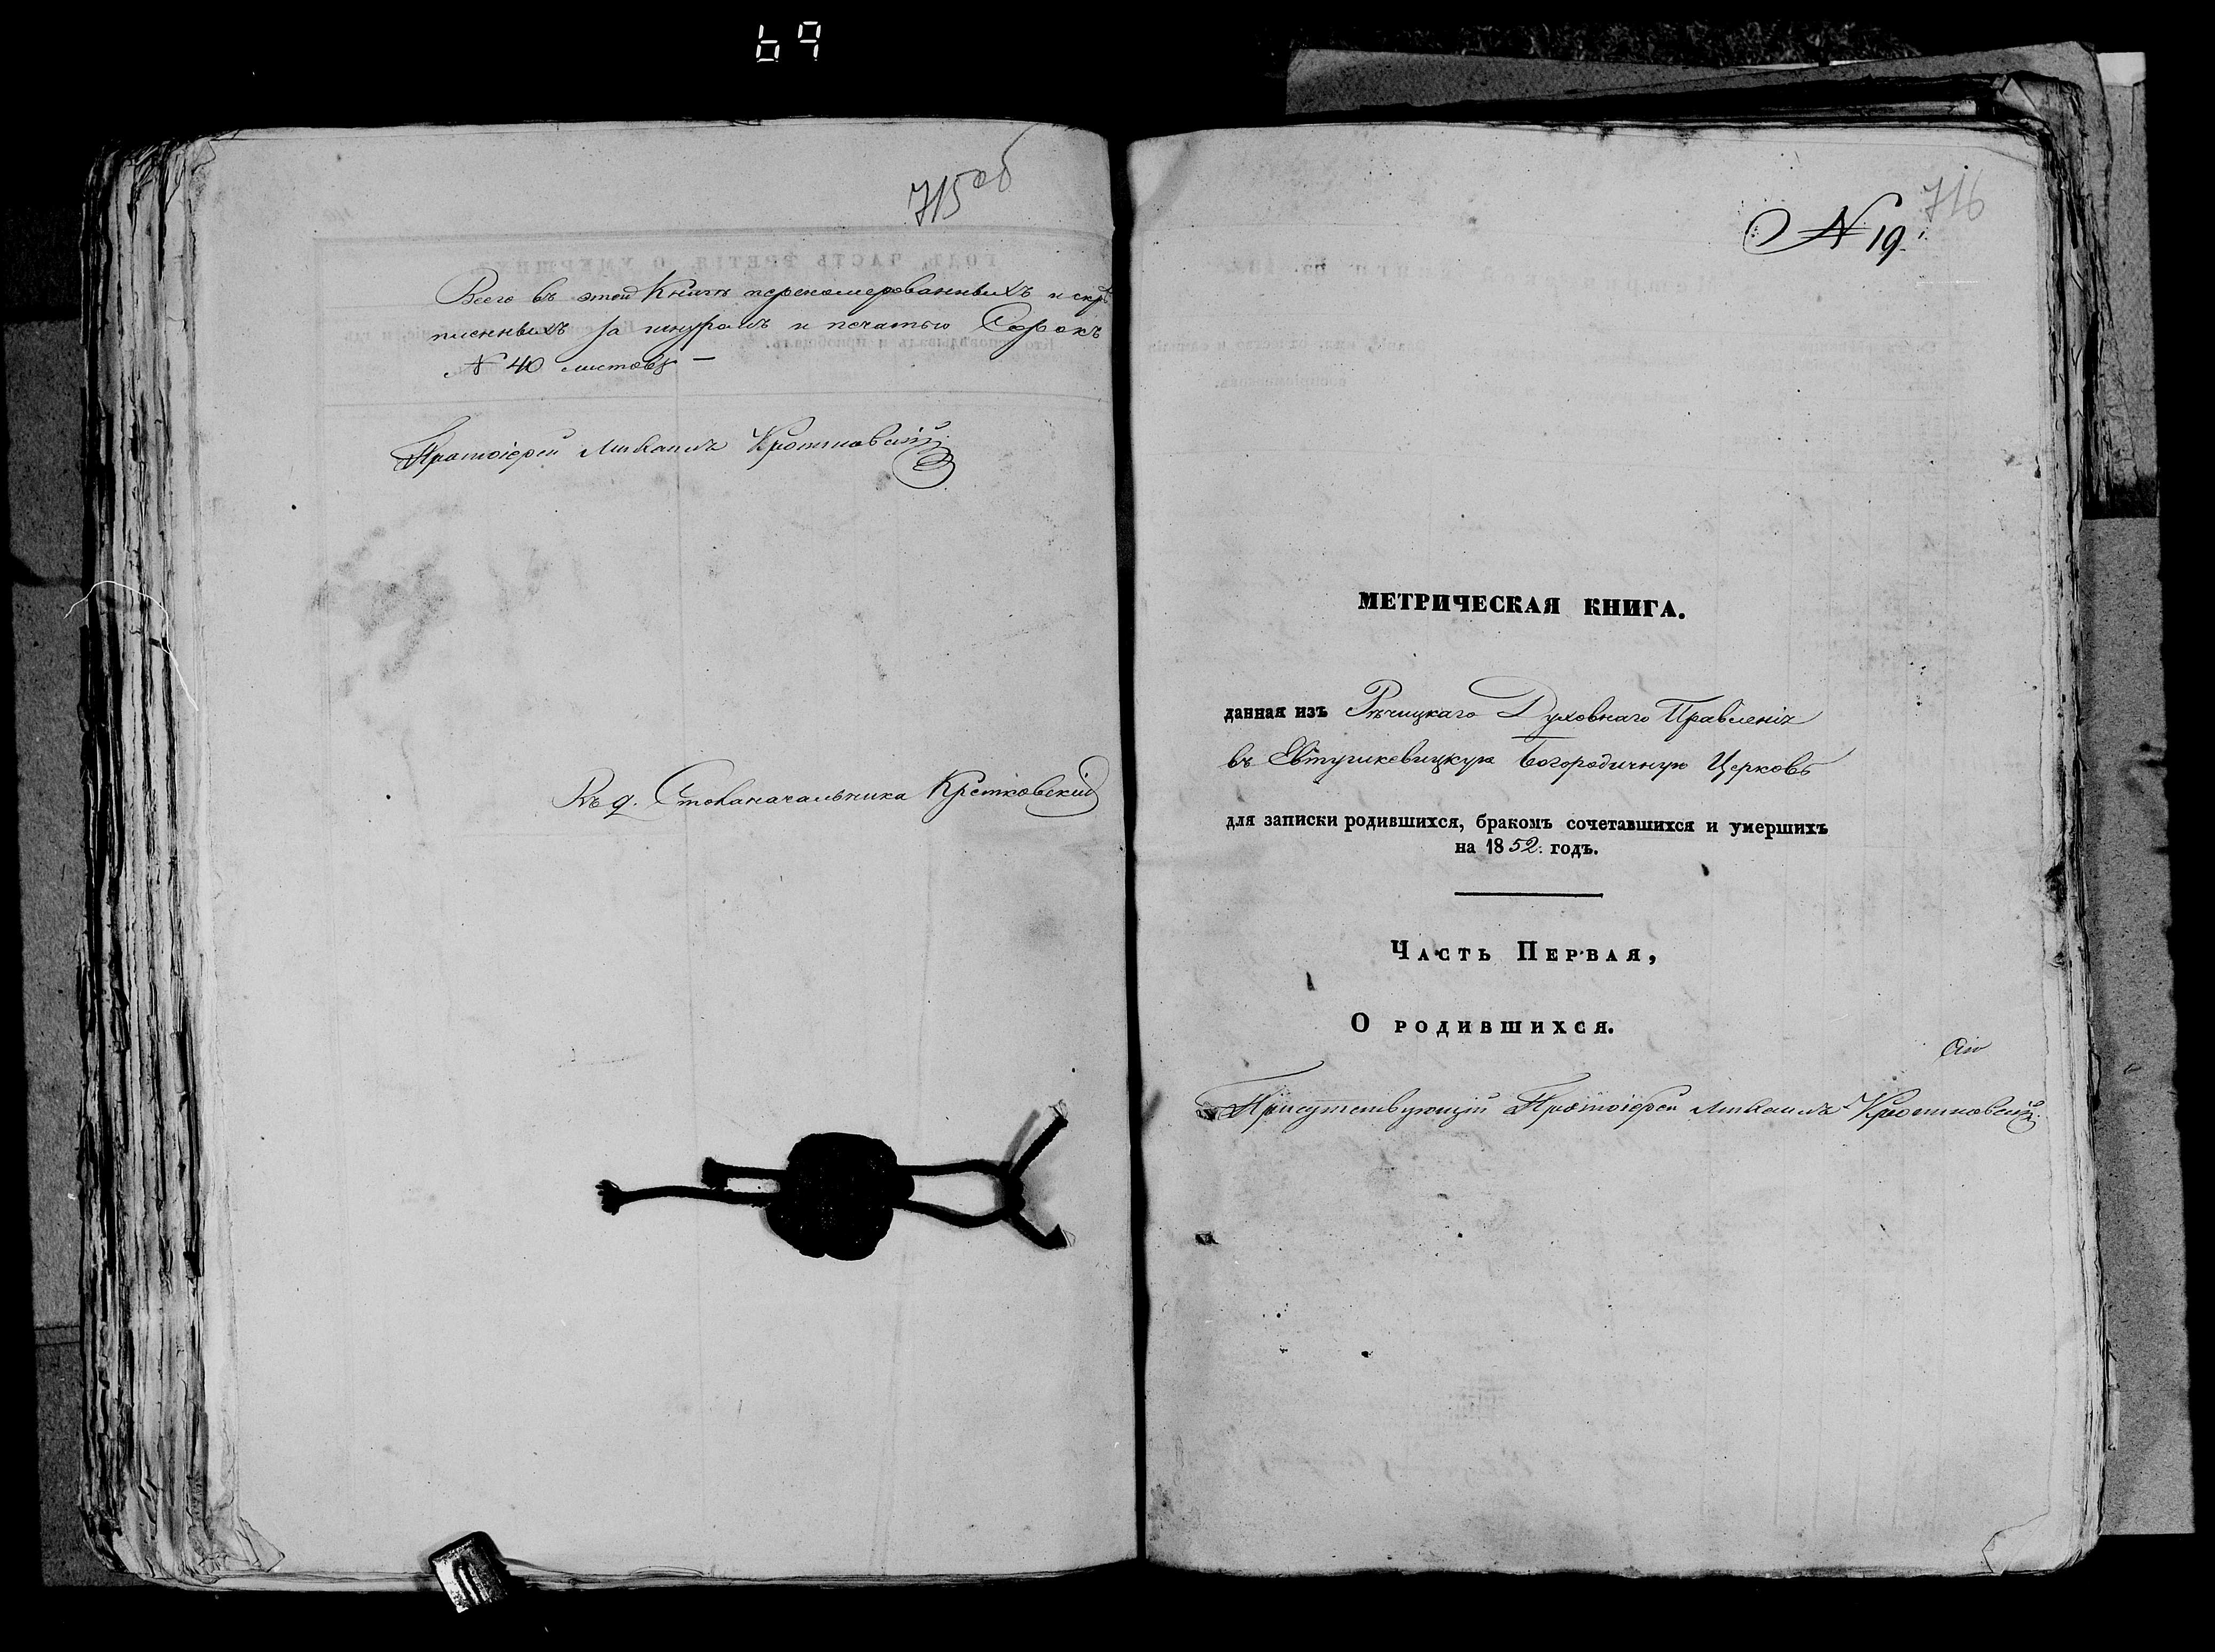 69
715об
Всего въ этой Книгѣ перенумерованныхъ и скрѣ
пленныхъ за шнуромъ и печатью Сорокъ
№ 40 листовъ —
Протоіерей Михаилъ
Въ д. Столоначальника
716
№ 19.
МЕТРИЧЕСКАЯ КНИГА.
данная изъ Рѣчицкаго Духовнаго Правленія
въ Автушкевицкую Богородичную Церковь
для записки родившихся, бракомъ сочетавшихся и умершихъ
на 1852. годъ.
Часть Первая,
О родившихся.
Присутствующій Протоіерей Михаилъ